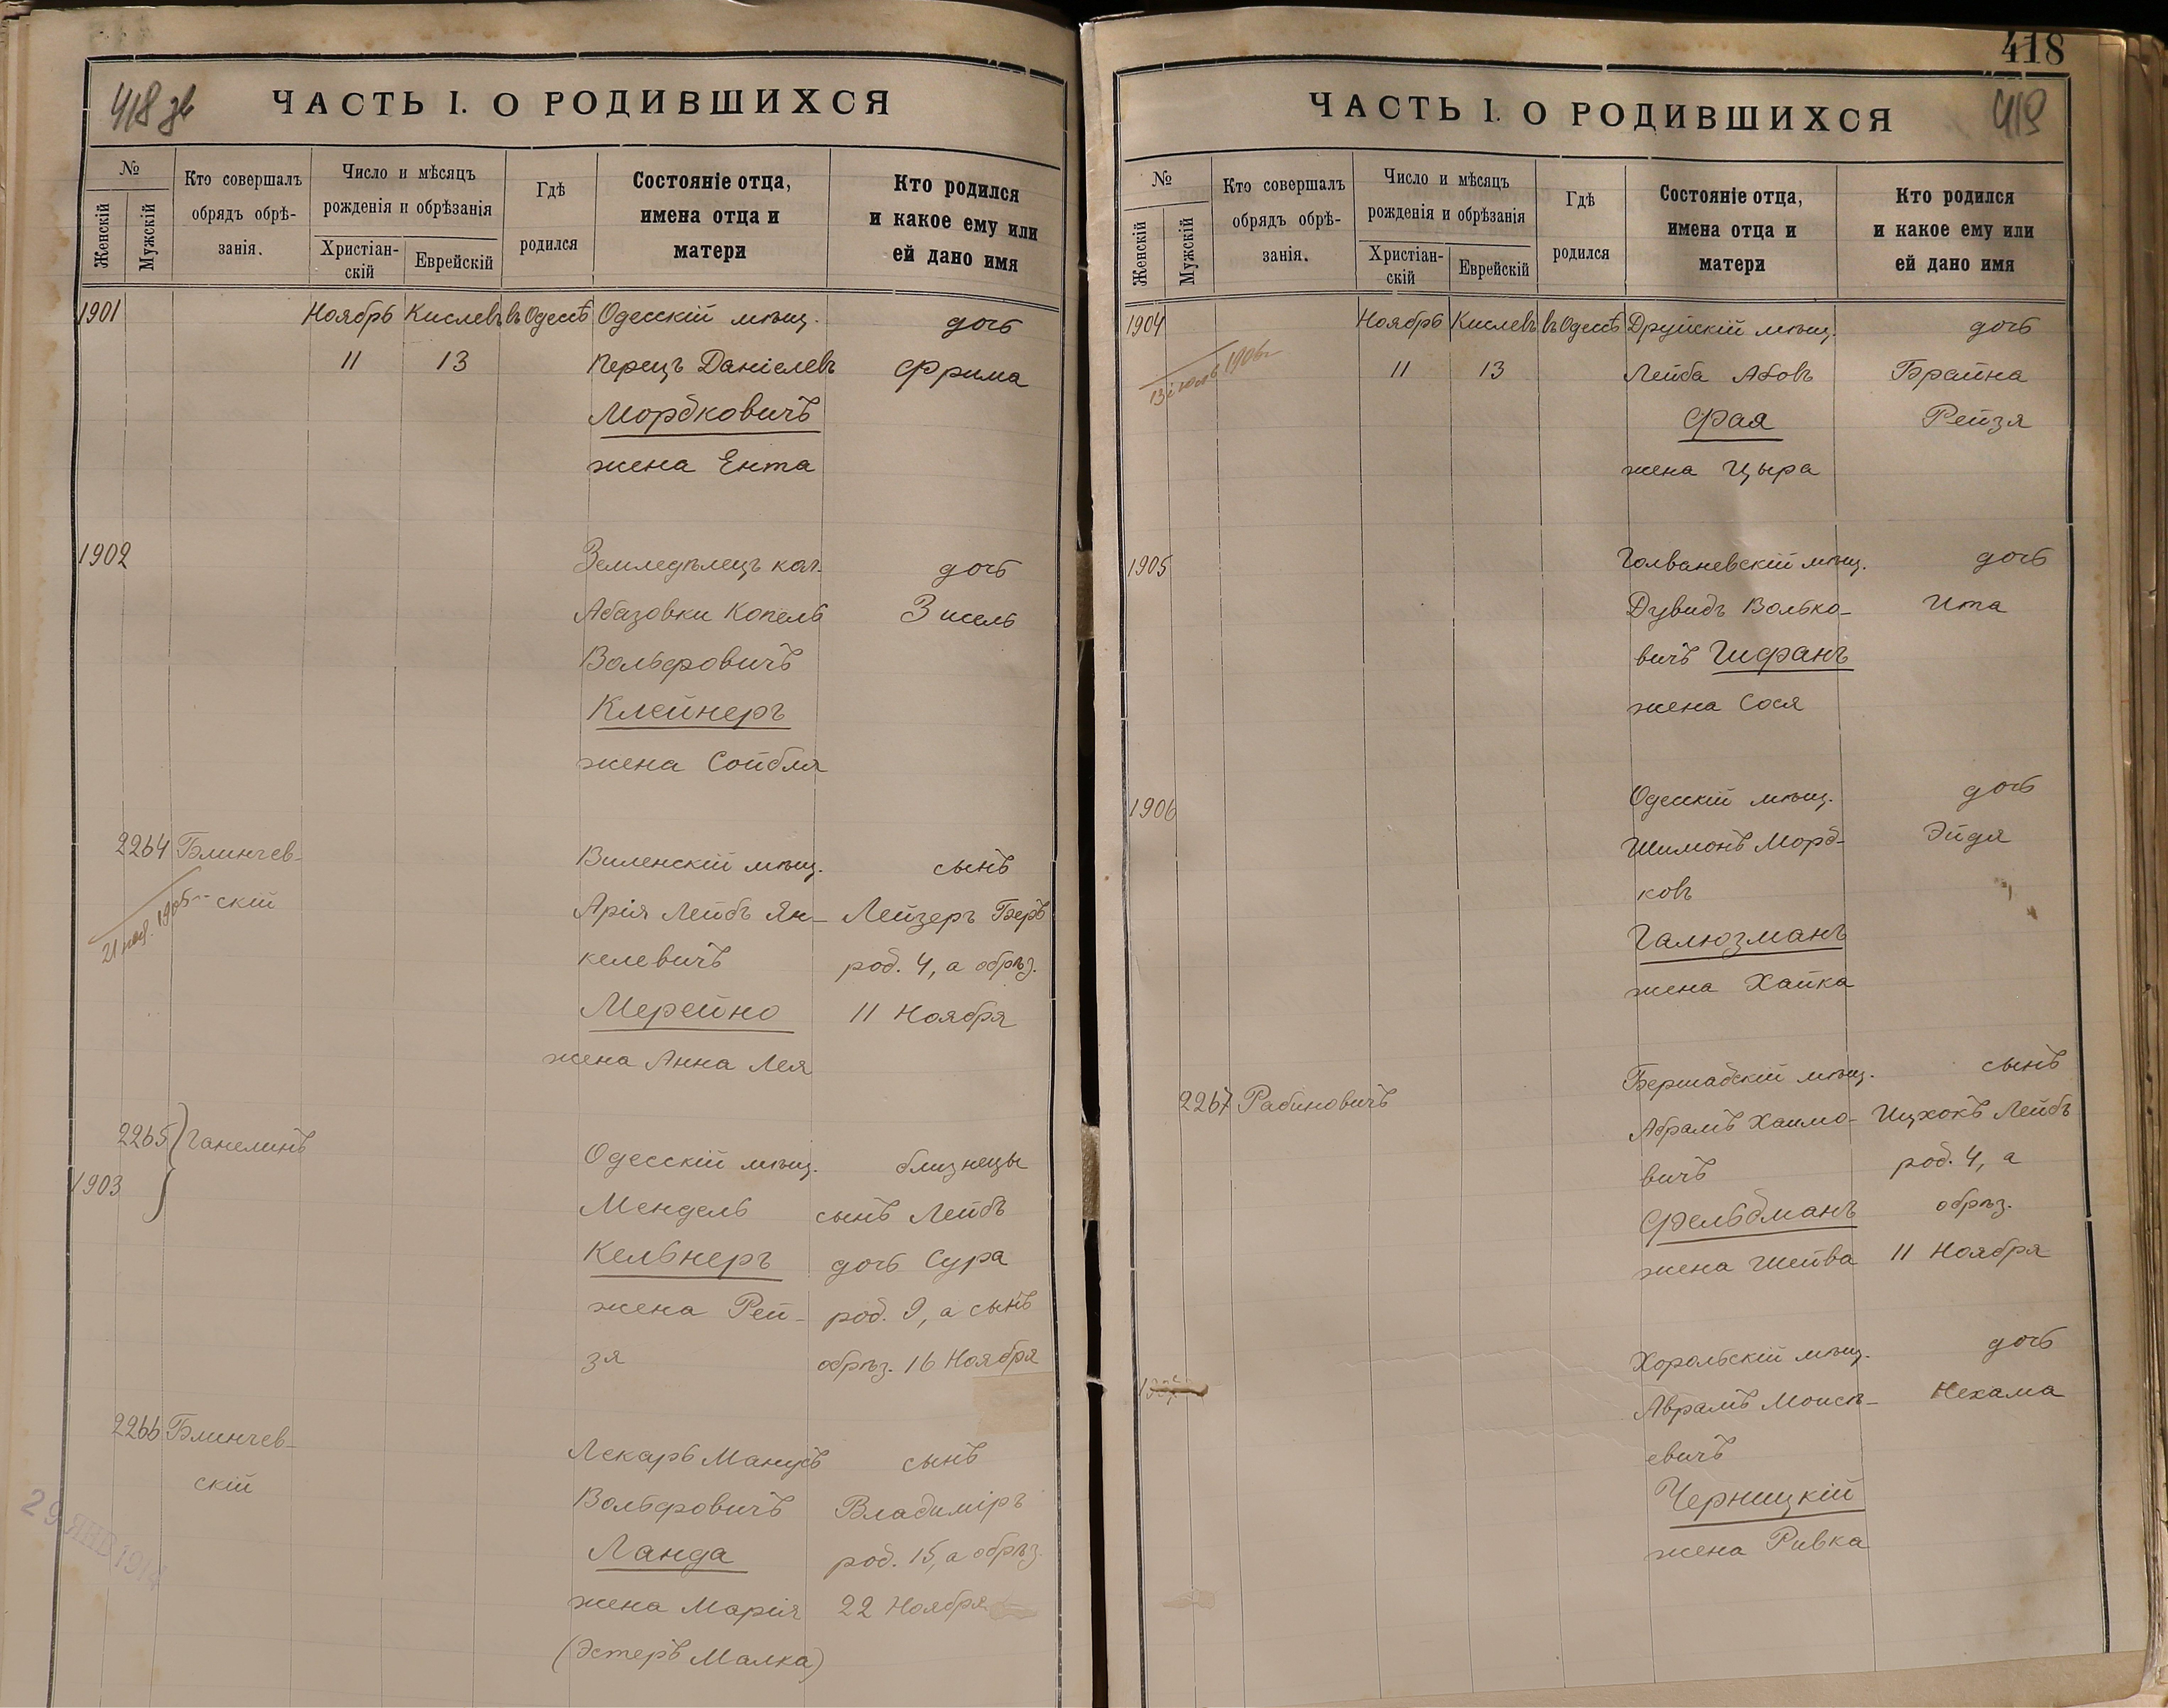 418 зв
ЧАСТЬ I. О РОДИВШИХСЯ
№
Женскій
Мужскій
Кто совершалъ
обрядъ обрѣ-
занія.
Число и мѣсяцъ
рожденія и обрѣзанія
Христіан-
скій
Еврейскій
Гдѣ
родился
Состояніе отца,
имена отца и
матери
Кто родился
и какое ему или
ей дано имя
1901 Ноябрь Кислевъ въ Одессѣ Одесскій мѣщ. дочь
11 13 Перецъ Даніелевъ Фрима
Мордковичъ
жена Ента
1902 Земледѣлецъ кол. дочь
Абазовки Копель Зисель
Вольфровичъ
Клейнеръ
жена Сойбля
2264 Блинчев-
скій
21 ноя. 1905
Виленскій мѣщ. сынъ
Арія Лейбъ Ян- Лейзеръ Беръ
келевичъ род. 4, а обрѣз.
Мерейно 11 Ноября
жена Анна Лея
2265 Ганелинъ
1903
Одесскій мѣщ. близнецы
Мендель сынъ Лейбъ
Кельнеръ дочь Сура
жена Рей- род. 9, а сынъ
зя обрѣз. 16 Ноября
2266 Блинчев-
скій
Лекарь Манусъ сынъ
Вольфровичъ Владиміръ
Ланда род. 15, а обрѣз.
жена Марія 22 Ноября
(Эстеръ Малка)
29 ЯНВ 1914
418
419
ЧАСТЬ I. О РОДИВШИХСЯ
№
Женскій
Мужскій
Кто совершалъ
обрядъ обрѣ-
занія.
Число и мѣсяцъ
рожденія и обрѣзанія
Христіан-
скій
Еврейскій
Гдѣ
родился
Состояніе отца,
имена отца и
матери
Кто родился
и какое ему или
ей дано имя
1904 Ноябрь Кислевъ въ Одессѣ Друйскій мѣщ. дочь
13 1906
11 13 Лейба Абовъ Брайна
Фая Рейзя
жена Цыра
1905 Голваневскій мѣщ. дочь
Дувидъ Волько- Ита
вичъ Шифранъ
жена Сося
1906 Одесскій мѣщ. дочь
Шимонъ Морд- Эйдя
ковъ
Галюзманъ
жена Хайка
2267 Рабиновичъ Бершадскій мѣщ. сынъ
Абрамъ Хаимо- Ицхокъ Лейбъ
вичъ род. 4, а
Фельдманъ обрѣз.
жена Шейва 11 Ноября
Хорольскій мѣщ. дочь
Аврамъ Моисѣ- Нехама
евичъ
Черницкій
жена Ривка